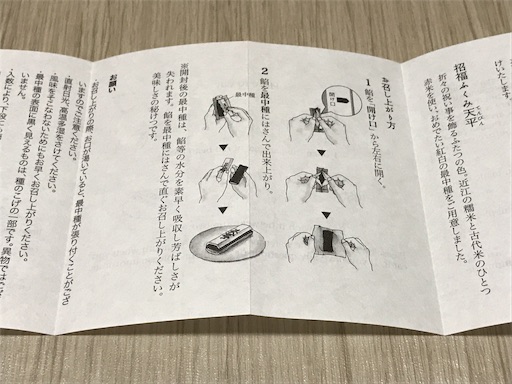 けいたします。
招福ふくみ天平
てんびん
折々の祝い事を飾るふたつの色。近江の糯米と古代米のひとつ
赤米を使い、おめでたい紅白の最中種をご用意しました。
お召し上がり方
1 餡を「開け口」から左右に開く。
開け口
2 餡を最中種にはさんで出来上がり。
最中種
※開封後の最中種は、餡等の水分を素早く吸収し芳ばしさが
失われます。餡を最中種にはさんで直ぐお召し上がりください。
美味しさの秘けつです。
お願い
お召し上がりの際、お口が渇いていると、最中種が張り付くことがござ
いますのでご注意ください。
・直射日光、高温多湿をさけてください。
・風味をそこなわないためにもお早くお召し上がりください。
・最中種の表面に黒く見えるものは、種のこげの一部です。異物では
いません。